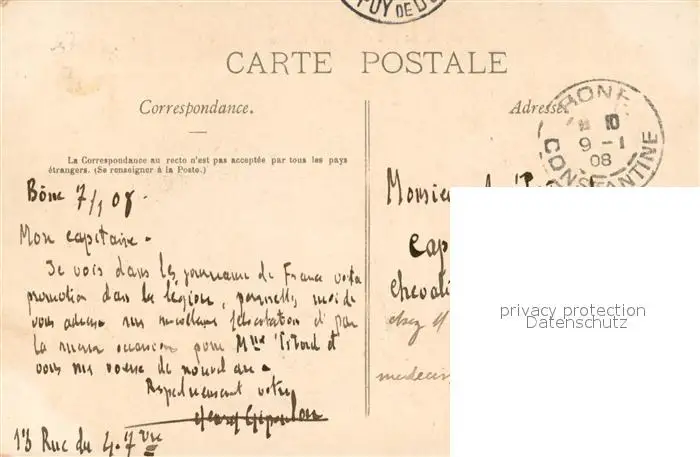 PUY DE D
CARTE POSTALE
Correspondance.
Adresse.
BONE
10
9 - 1
08
CONSTANTINE
La Correspondance au recto n'est pas acceptée par tous les pays
étrangers. (Se renseigner à la Poste.)
Bône 7/1 08.
Mon capitaine -
Je vois dans les journaux de France votre
promotion dans la légion, permettez moi de
vous adresser mes meilleures félicitations et par
la même occasion pour Mme et
vous mes voeux de nouvel an -
Respectueusement votre
13 Rue du 4. 7bre
Monsieur
Cap
chevali
chez M
medecin
privacy protection
Datenschutz